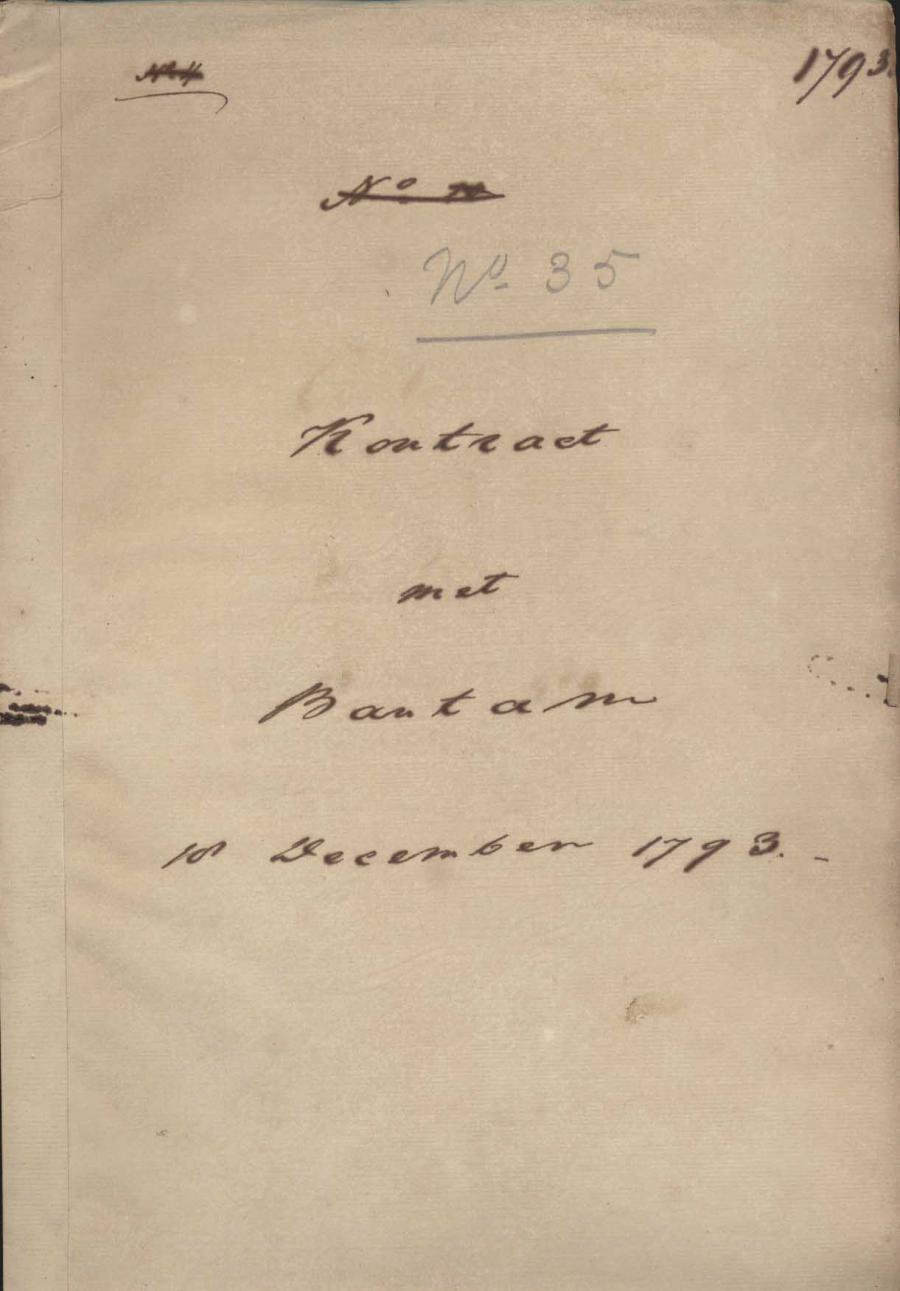 1793.
Nº
Nº 35
Kontract
met
Bantam
December 1793.